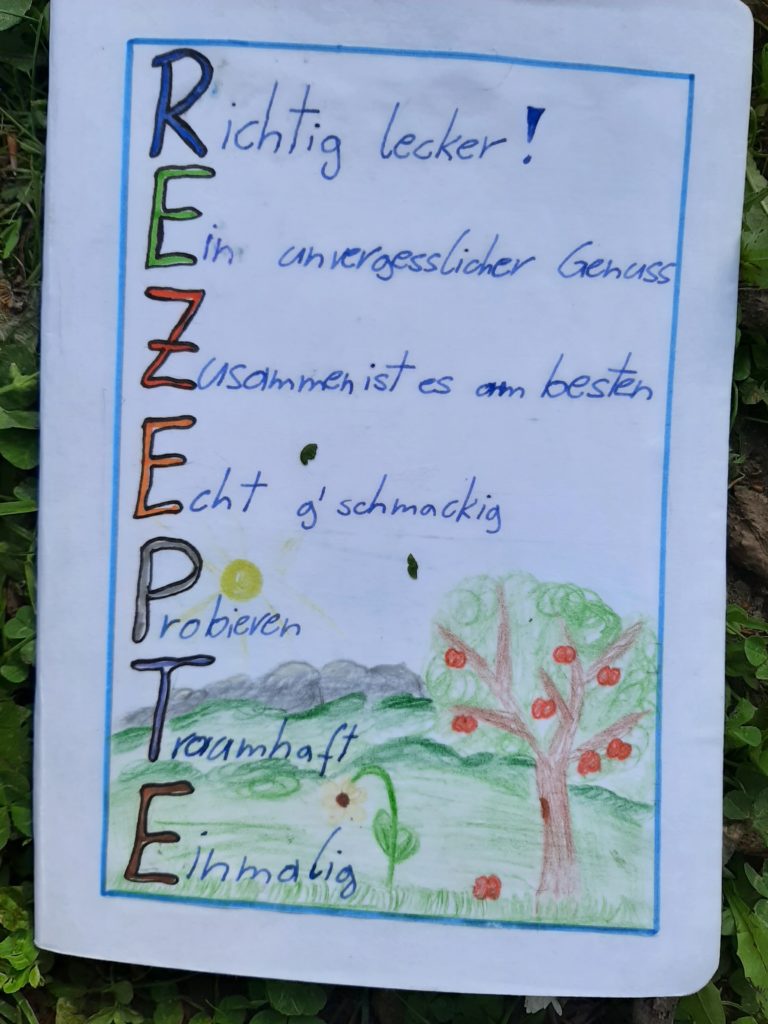 Richtig lecker!
Ein unvergesslicher Genuss
Zusammen ist es am besten
Echt g'schmackig
Probieren
Traumhaft
Einmalig